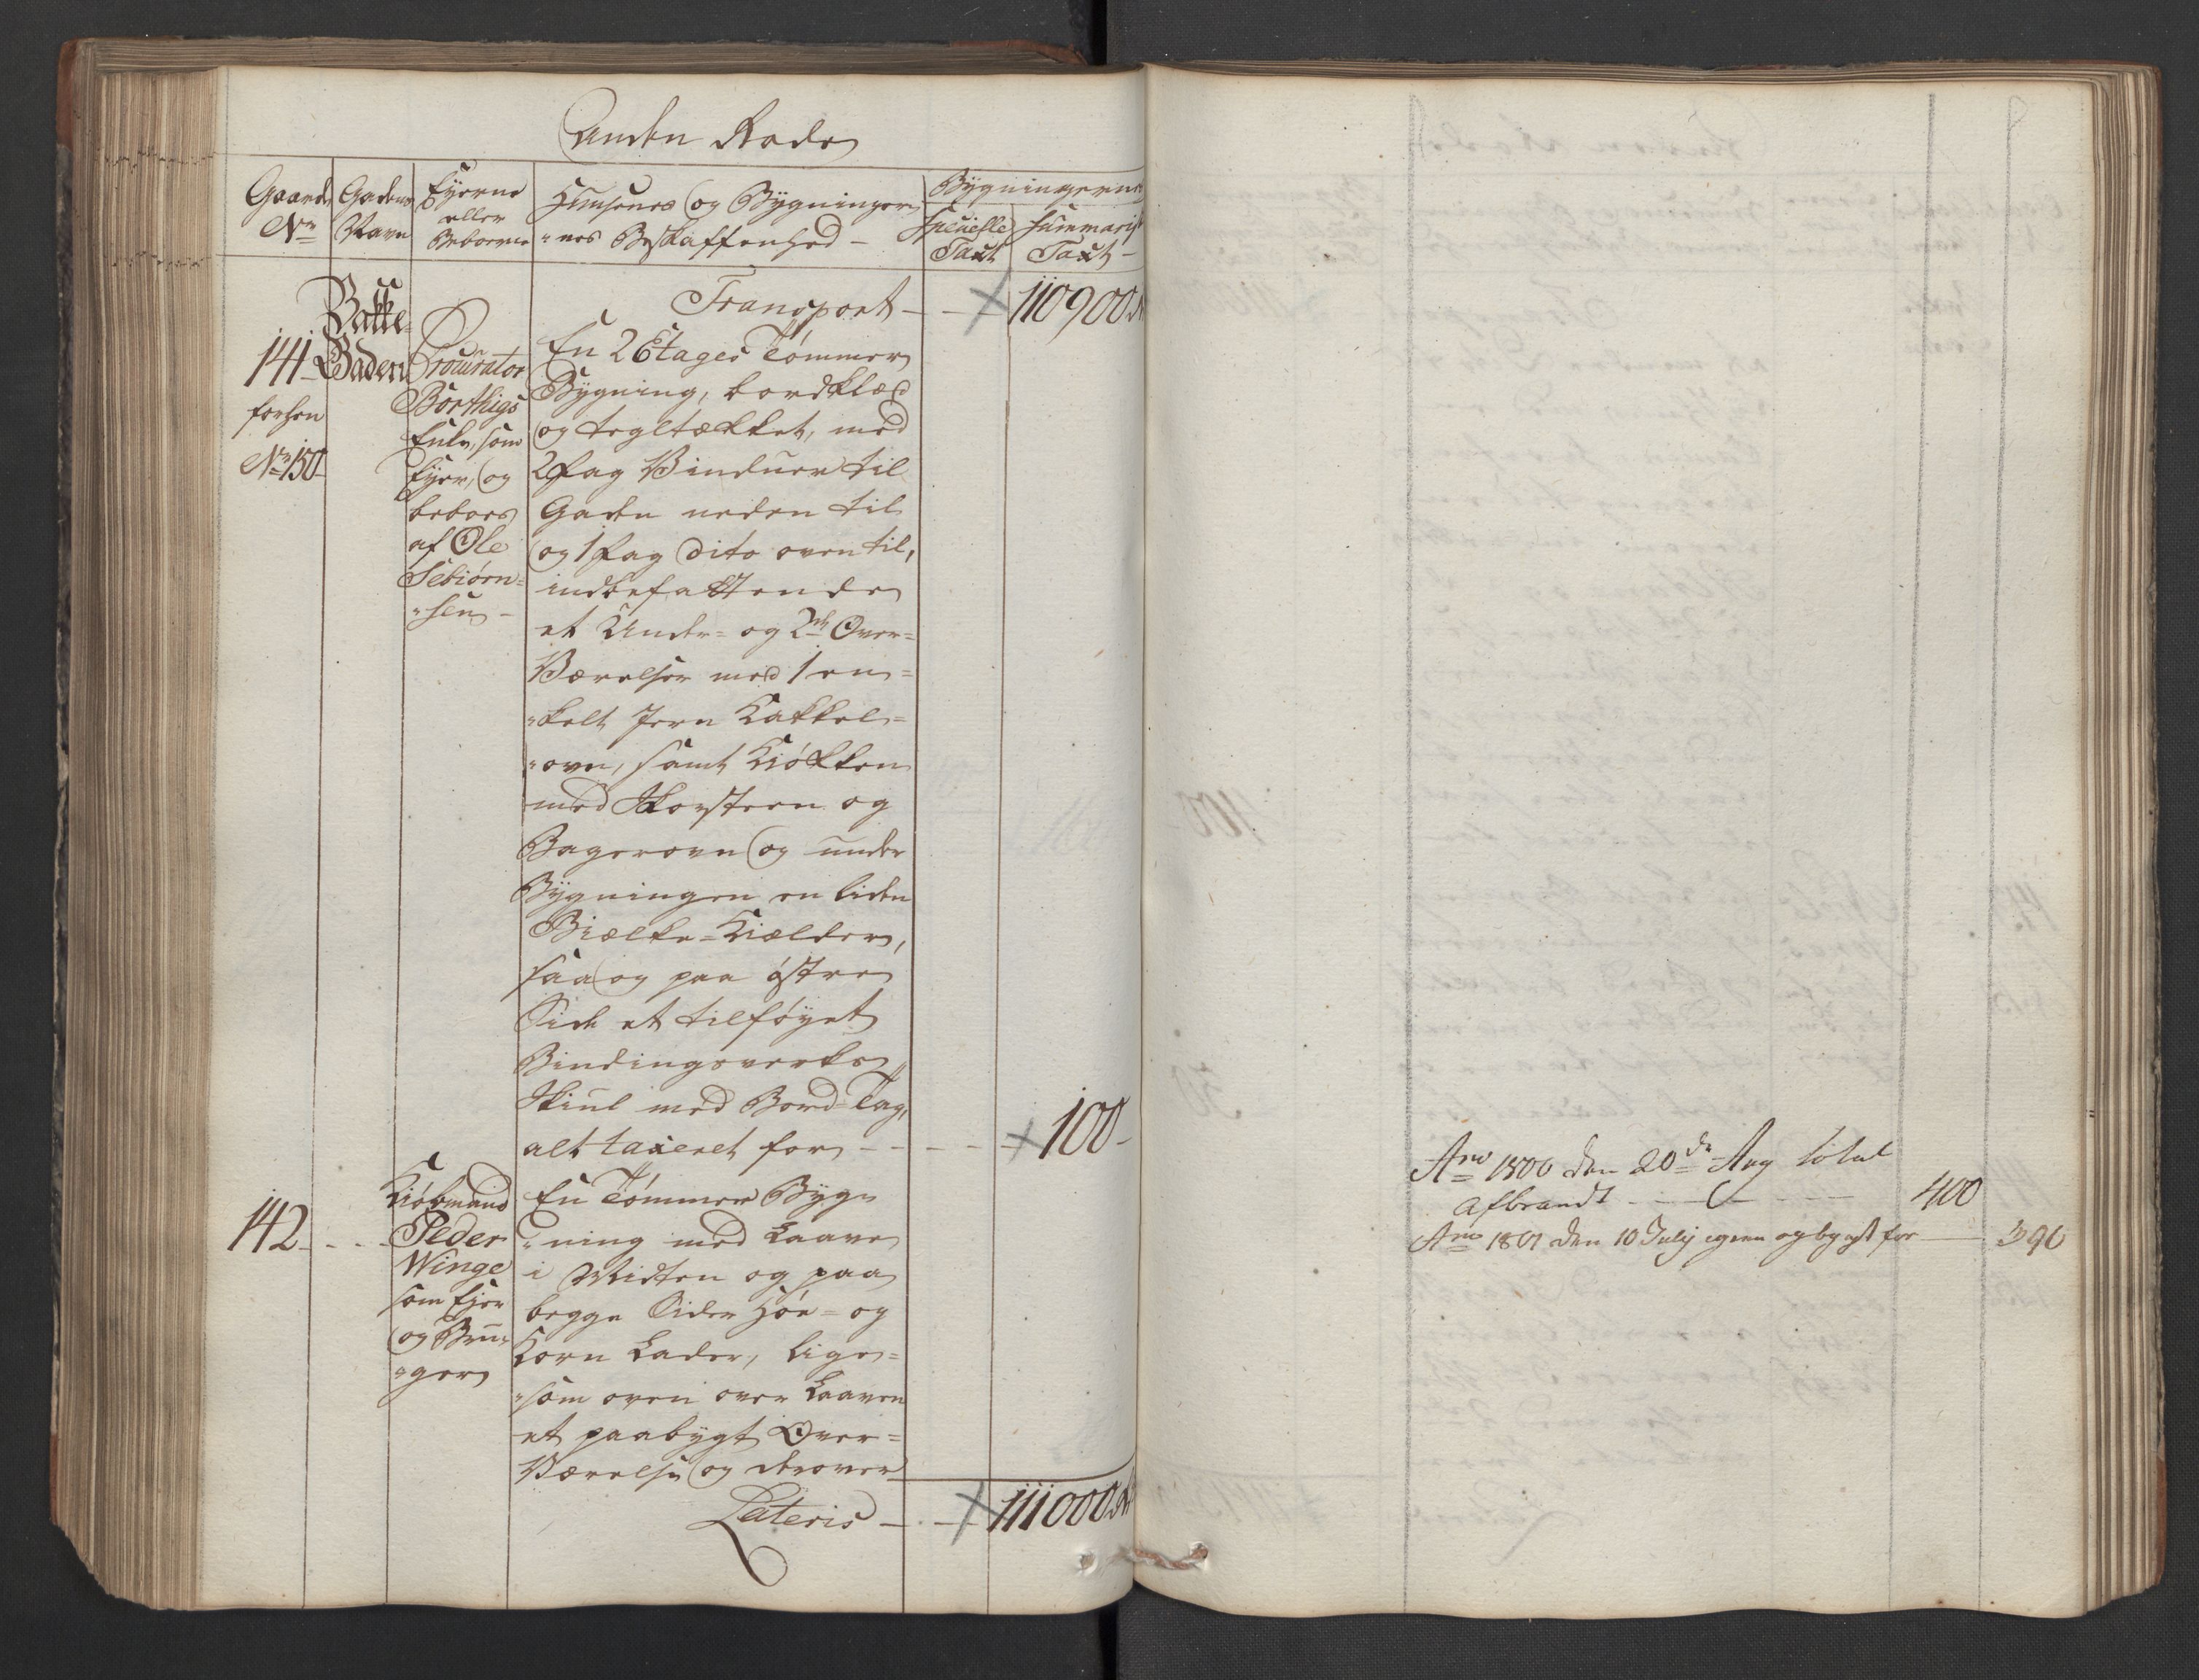 Anden Rode
Gaards Gadens Eyerne Huusenes og Bygninger Bygningernes
No Navn eller Beboerne "nes Beskaffenhed - Specielle Taxt Summarisk Taxt -
Transport - - 110900 rd
Bakke-
Gaden
141-
forhen
No 150
Procurator
Borthigs
Enke, som
Eyer, og
beboes
af Ole
Sebiørn=
"sen -
En 2 Etages Tømmer
Bygning, bordklæd
og tegltækket, med
2 Fag Vinduer til
Gaden neden til
og 1 Fag dito oven til,
indbefattende
et Under= og 2de Over=
Værelser med 1 en=
"kelt Jern Kakkel=
"ovn, samt Kiøkken
med Skorsteen og
Bagerovn og under
Bygningen en liden
Bielke=Kielder,
saa og paa østre
Side et tilføyet
Bindingsverks
Skiul med Bord=Tag,
alt taxeret for - - - - 100 -
142 - - -
Kiøbmand
Peder
Winge
som Eyer
og Bru=
"ger
En Tømmer Byg=
"ning med Laave
i Midten og paa
begge Sider Høe= og
Korn Lader, lige=
"som oven over Laaven
et paabygt Over=
Værelse og derover
Lateris - - - 111000 rd
Ano 1800 den 20de Aug total
afbrandt - - - 400
Ano 1801 den 10 July igien opbygt for 390